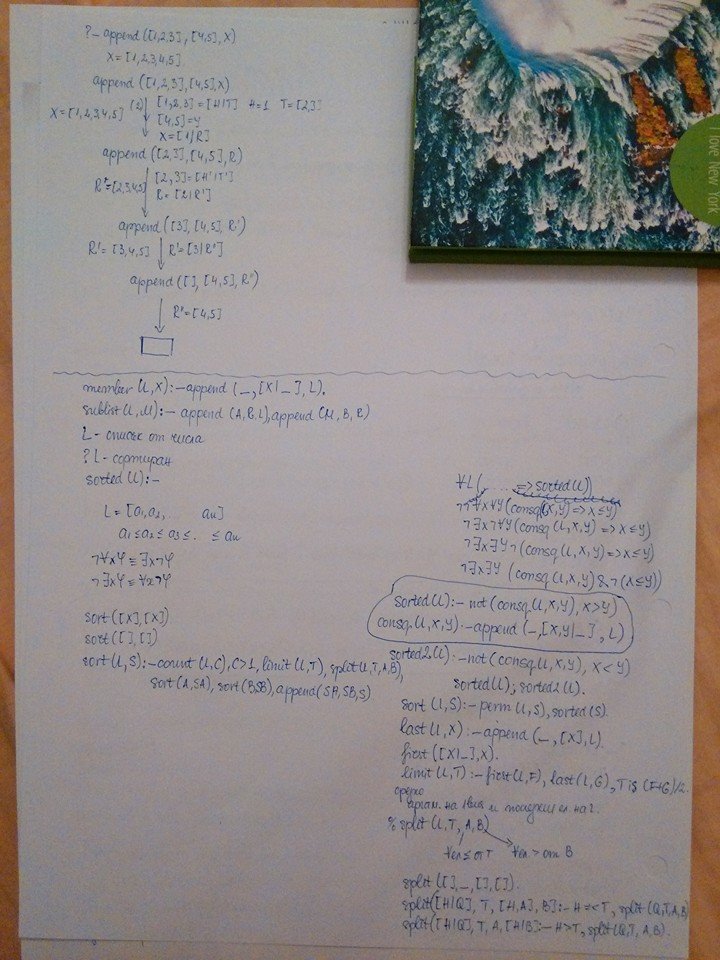 ?- append([1,2,3],[4,5],X)
X=[1,2,3,4,5]
append([1,2,3],[4,5],X)
X=[1,2,3,4,5] (2) [1,2,3]=[H|T] H=1 T=[2,3]
[4,5]=Y
X=[1|R]
append([2,3],[4,5],R)
R=[2,3,4,5] [2,3]=[H'|T']
R=[2|R']
append([3],[4,5],R')
R'=[3,4,5] R'=[3|R'']
append([],[4,5],R'')
R''=[4,5]
member(L,X):-append(_,[X|_],L).
sublist(L,M):- append(A,R,L),append(M,B,R)
L - списък от числа
? L - сортиран
sorted(L):-
L=[a1,a2,... an]
a1≤a2≤a3≤. ≤an
¬∀xφ≡∃x¬φ
¬∃xφ≡∀x¬φ
sort([X],[X])
sort([],[])
sort(L,S):-count(L,C),C>1,limit(L,T),split(L,T,A,B),
sort(A,SA),sort(B,SB),append(SA,SB,S)
∀L(..... => sorted(L))
¬¬∀x∀y(consq(L,X,Y)=>x≤y)
¬∃x¬∀y(consq(L,X,Y)=>x≤y)
¬∃x∃y¬(consq(L,X,Y)=>x≤y)
¬∃x∃y (consq(L,X,Y)&¬(x≤y))
sorted(L):-not(consq(L,X,Y),X>Y)
consq(L,X,Y):-append(_,[X,Y|_],L)
sorted2(L):-not(consq(L,X,Y),X<Y)
sorted(L);sorted2(L).
sort(L,S):-perm(L,S),sorted(S).
last(L,X):-append(_,[X],L).
first([X|_],X).
limit(L,T):-first(L,F),last(L,G),T is (F+G)/2.
средно
аритм. на и последния ел. на
% split(L,T,A,B)
∀ел≤от T ∀ел.> от B
split([],_,[],[]).
split([H|Q],T,[H,A],B]:-H=<T, split(Q,T,A,B)
split([H|Q],T,A,[H|B]:-H>T, split(Q,T,A,B).
I LOVE NEW YORK